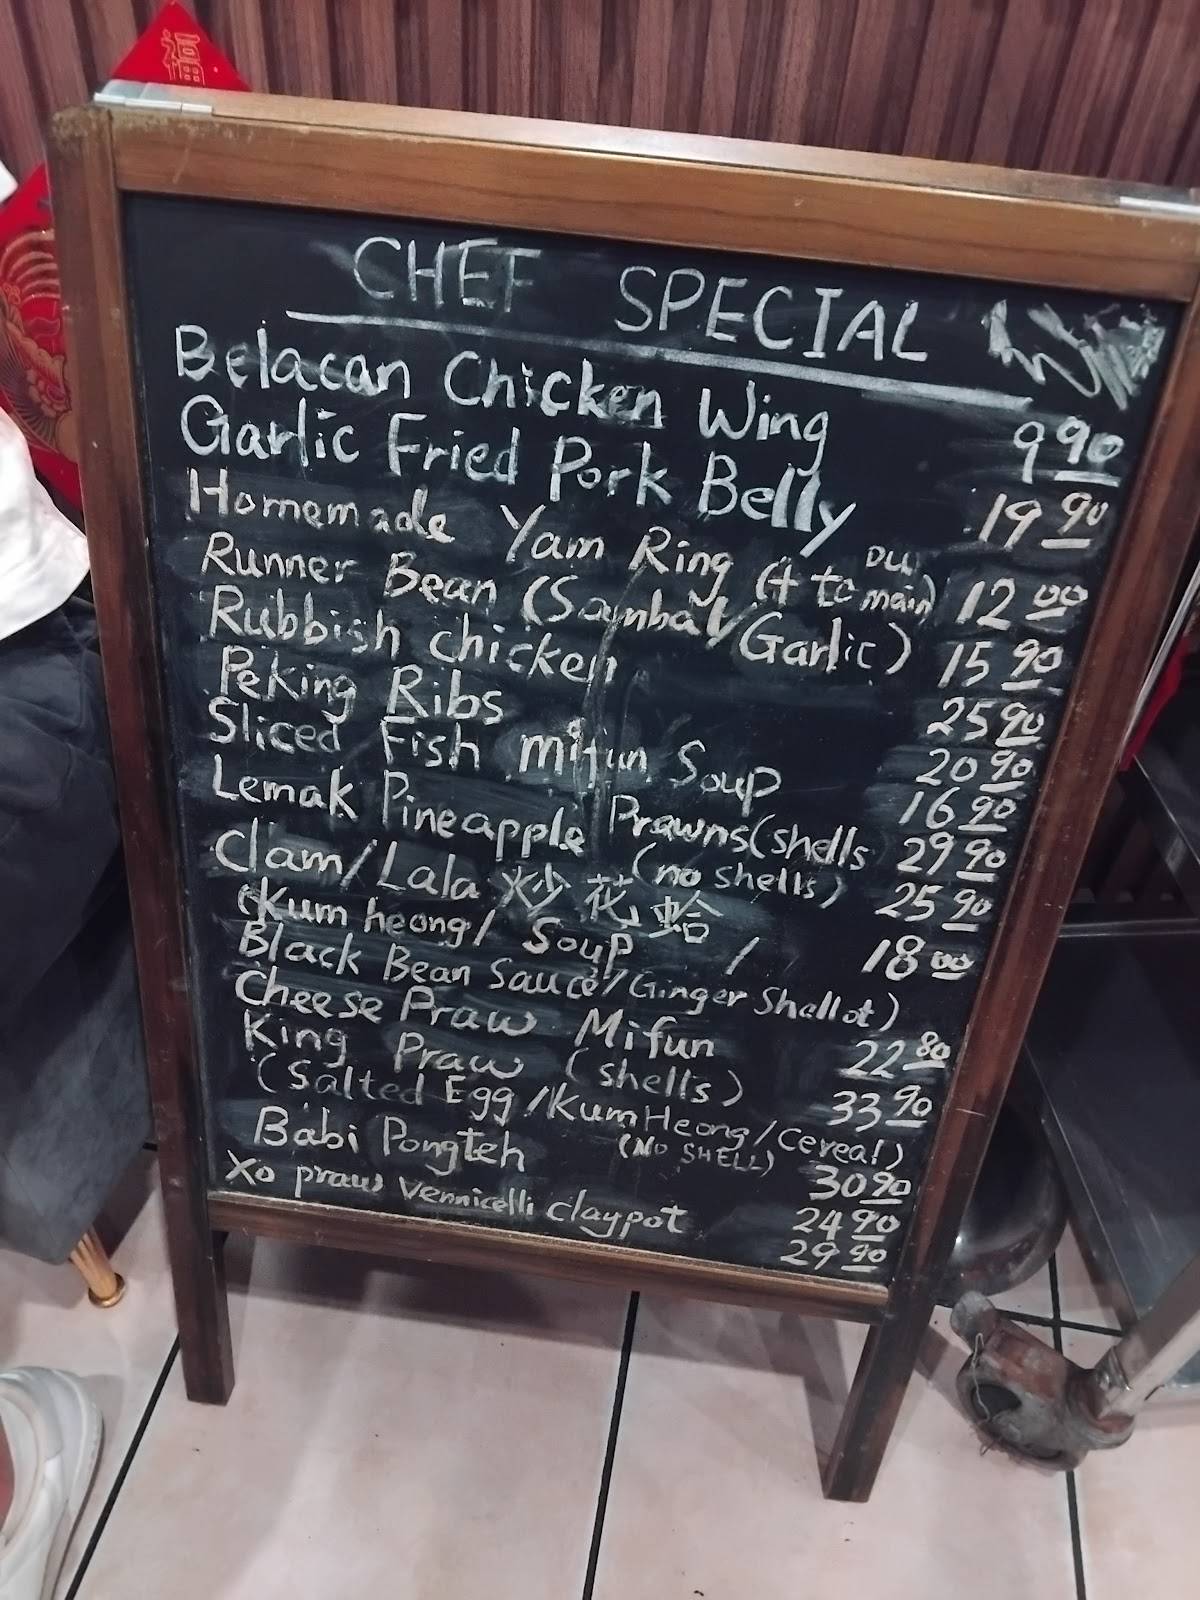 福
CHEF SPECIAL
Belacan Chicken Wing 9 90
Garlic Fried Pork Belly 19 90
Homemade Yam Ring (+ to main) 12 00
Runner Bean (Sambal/Garlic) 15 90
Rubbish chicken 25 90
Peking Ribs 20 90
Sliced Fish mifun Soup 16 90
Lemak Pineapple Prawns (shells 29 90
(no shells) 25 90
Clam/Lala 炒花蛤 / 18 00
(Kum heong/ Soup /
Black Bean Sauce/Ginger Shallot)
Cheese Praw Mifun 22 80
King Praw (shells) 33 90
(Salted Egg/KumHeong/Cereal)
(NO SHELL) 30 90
Babi Pongteh 24 90
Xo praw vermicelli claypot 29 90